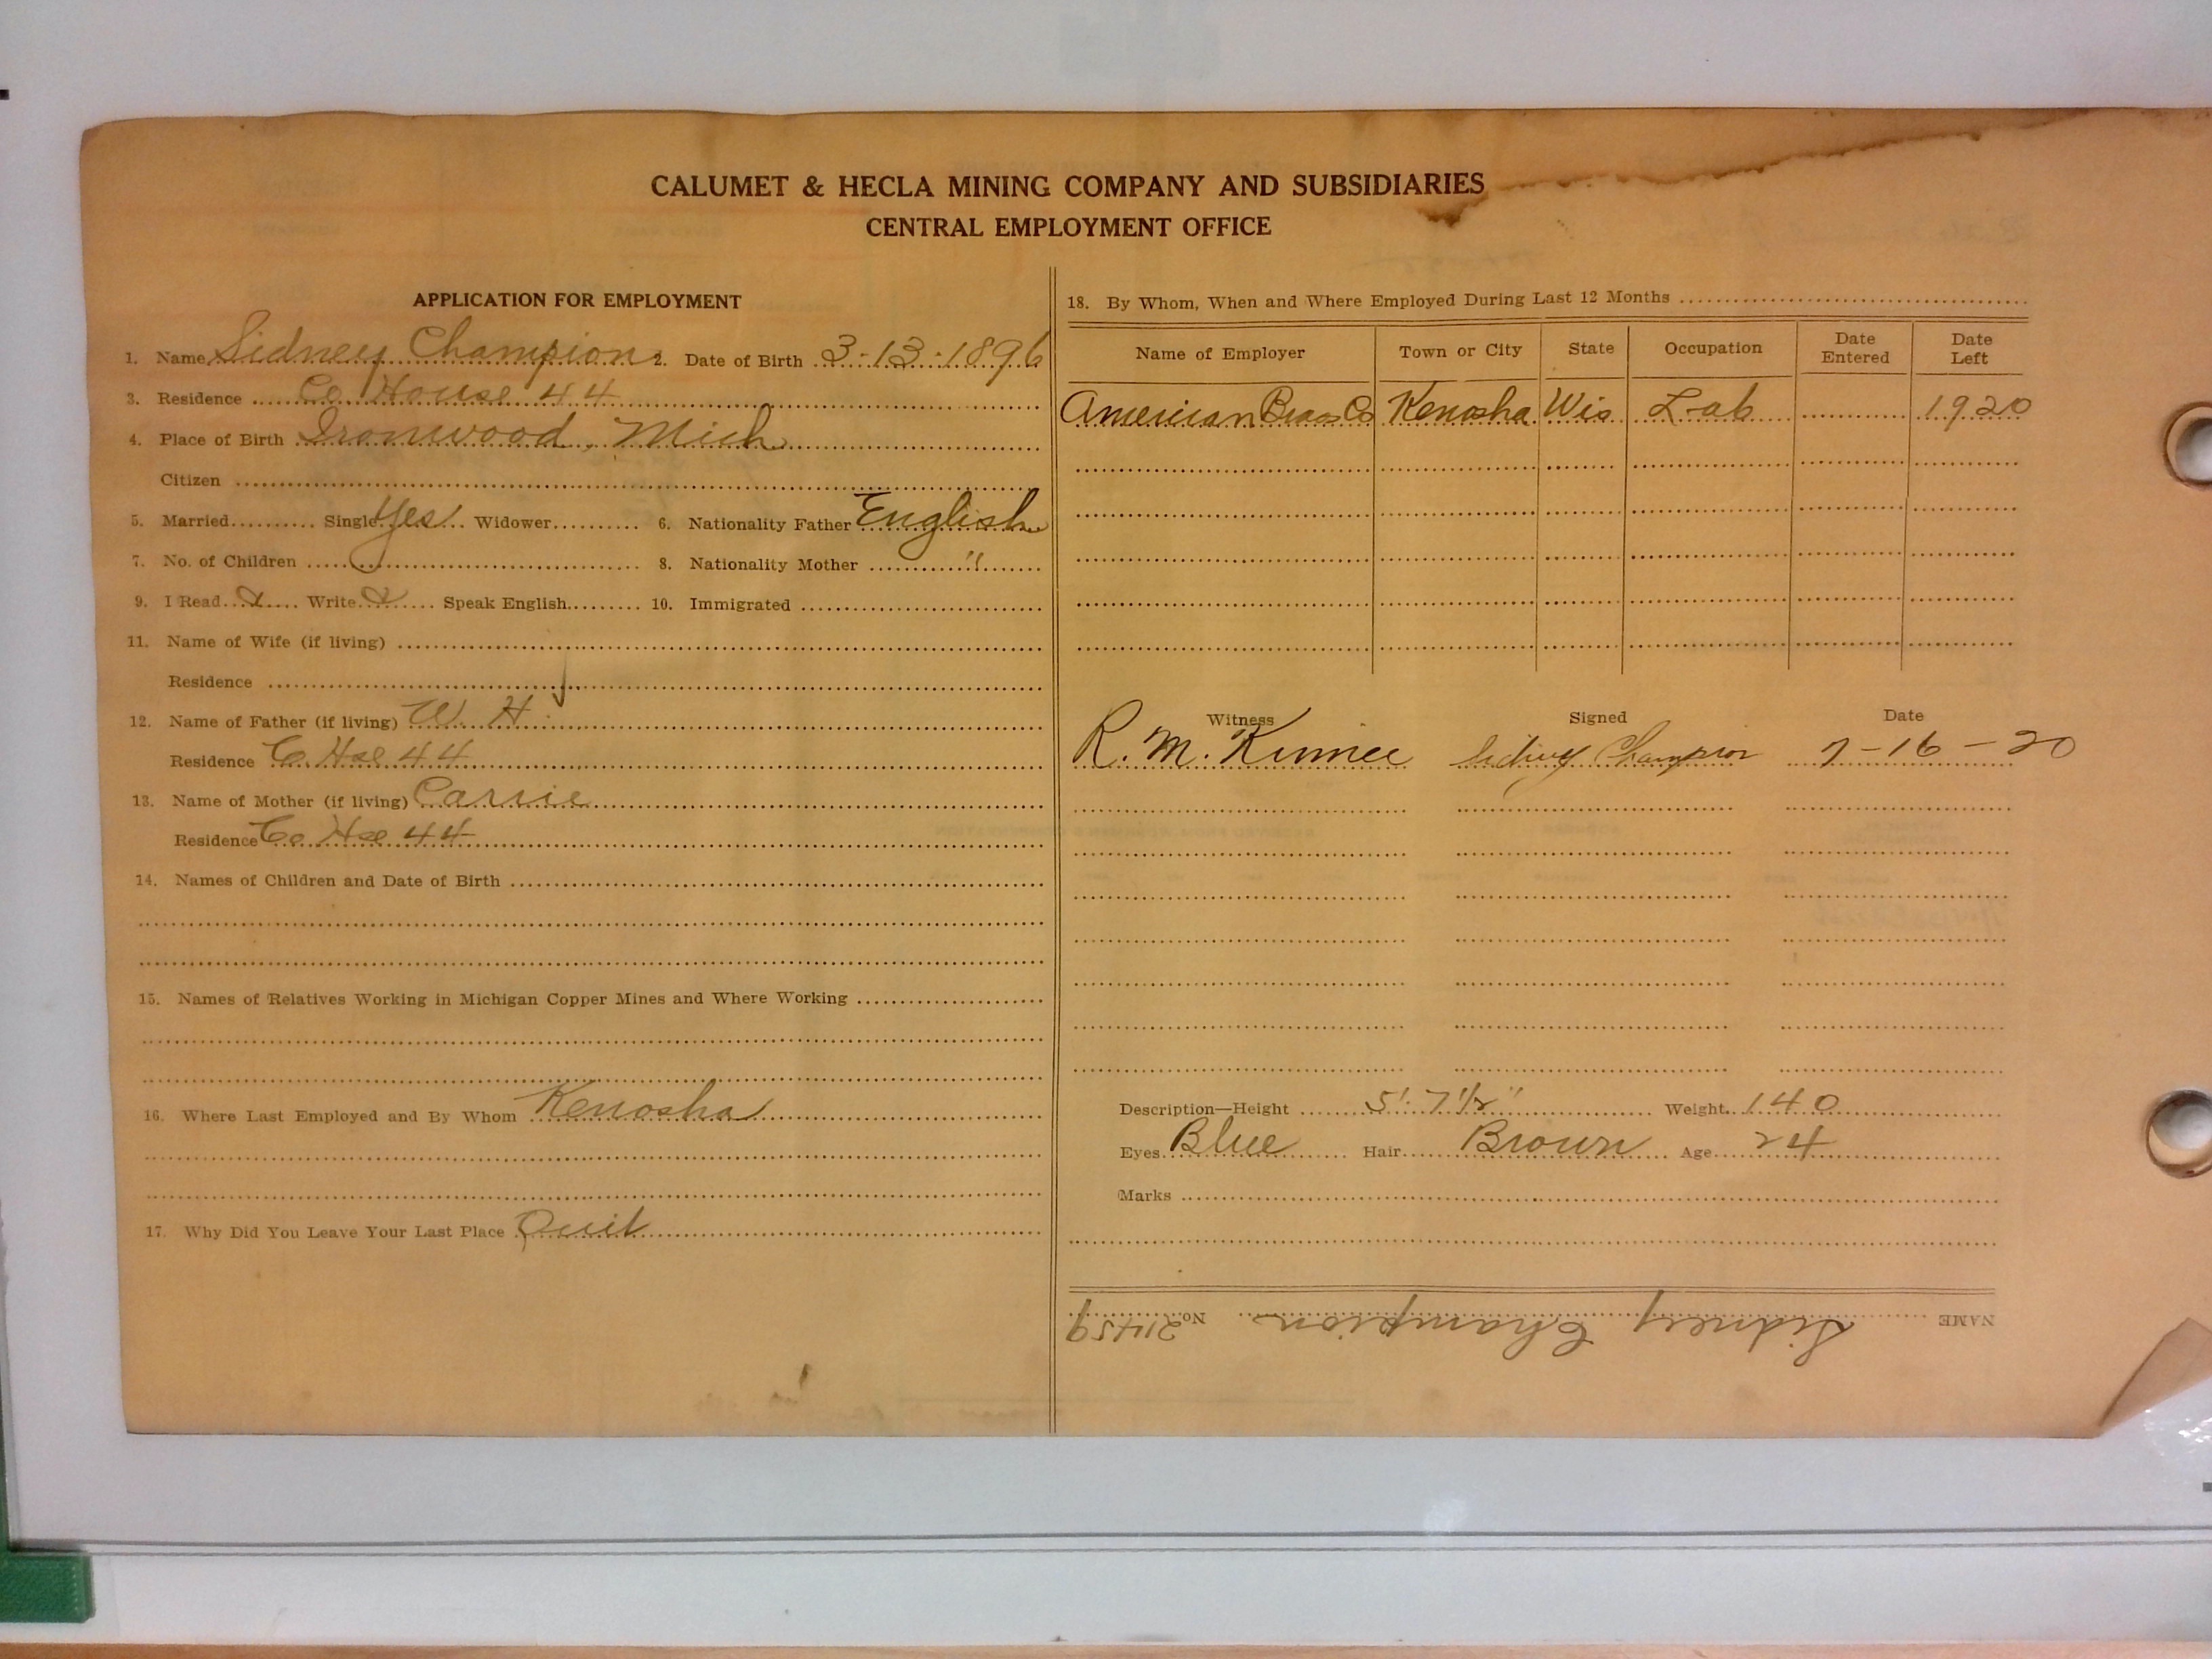 CALUMET & HECLA MINING COMPANY AND SUBSIDIARIES
CENTRAL EMPLOYMENT OFFICE
APPLICATION FOR EMPLOYMENT
1. Name Sidney Champion 2. Date of Birth 3-13-1896
3. Residence Co House 44
4. Place of Birth Ironwood, Mich
Citizen
5. Married Single Yes Widower 6. Nationality Father English
7. No. of Children 8. Nationality Mother "
9. I Read Write Speak English 10. Immigrated
11. Name of Wife (if living)
Residence
12. Name of Father (if living) W. H.
Residence Co. Hse 44
13. Name of Mother (if living) Carrie
Residence Co Hse 44
14. Names of Children and Date of Birth
15. Names of Relatives Working in Michigan Copper Mines and Where Working
16. Where Last Employed and By Whom Kenosha
17. Why Did You Leave Your Last Place Quit
18. By Whom, When and Where Employed During Last 12 Months
Name of Employer Town or City State Occupation Date Entered Date Left
American Brass Co Kenosha Wis Lab 1920
Witness Signed Date
R. M. Sidney Champion 7-16-20
Description—Height 5' 7 1/2" Weight 140
Eyes Blue Hair Brown Age 24
Marks
NAME Sidney Champion No. 21459